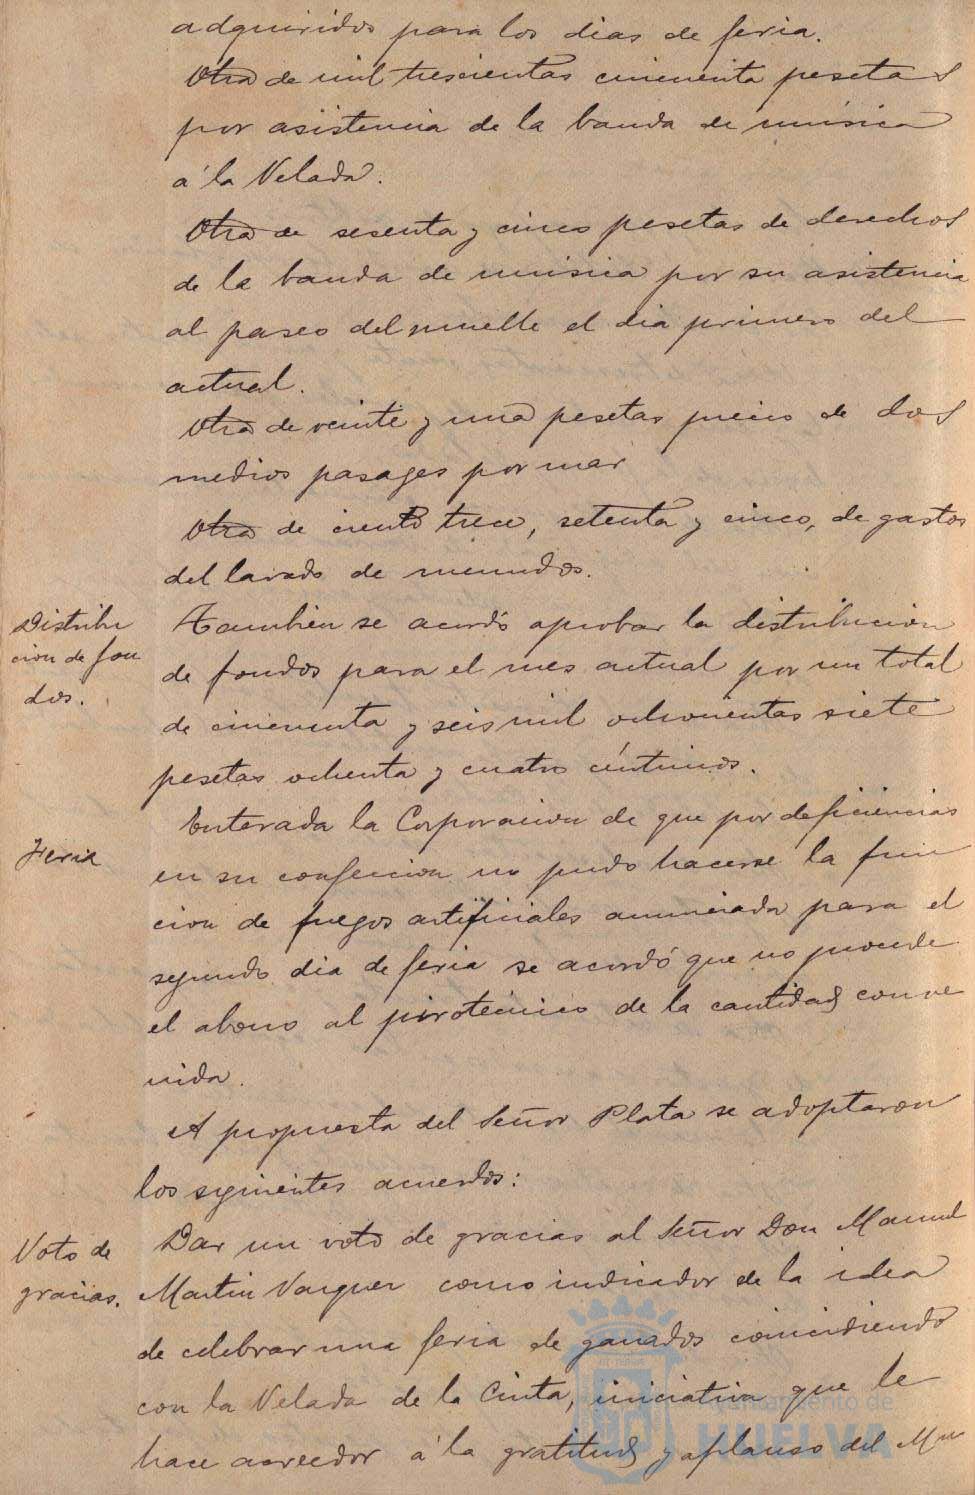 adquiridos para los dias de feria.
Otra de mil trescientas cincuenta pesetas
por asistencia de la banda de música
á la Velada.
Otra de sesenta y cinco pesetas de derechos
de la banda de musica por su asistencia
al paseo del muelle el dia primero del
actual.
Otra de veinte y una pesetas precio de dos
medios pasages por mar
Otra de ciento trece, setenta y cinco, de gastos
del lavado de menudos.
Distribu
cion de fon
dos.
Tambien se acordó aprobar la distribucion
de fondos para el mes actual por un total
de cincuenta y seis mil ochocientas siete
pesetas ochenta y cuatro céntimos.
Feria
Enterada la Corporacion de que por deficiencias
en su confeccion no pudo hacerse la fun
cion de fuegos artificiales anunciada para el
segundo dia de feria se acordó que no procede
el abono al pirotécnico de la cantidad conve
nida.
A propuesta del Señor Plata se adoptaron
los siguientes acuerdos:
Voto de
gracias.
Dar un voto de gracias al Señor Don Manuel
Martin Vazquez como indicador de la idea
de celebrar una feria de ganados coincidiendo
con la Velada de la Cinta, iniciativa que le
hace acreedor á la gratitud y aplauso del Mu
Ayuntamiento de
HUELVA